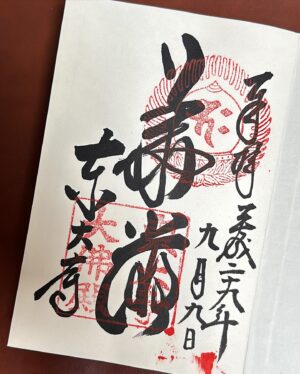 奉拝
平成二十九年
九月九日
華厳
東大寺
大佛殿